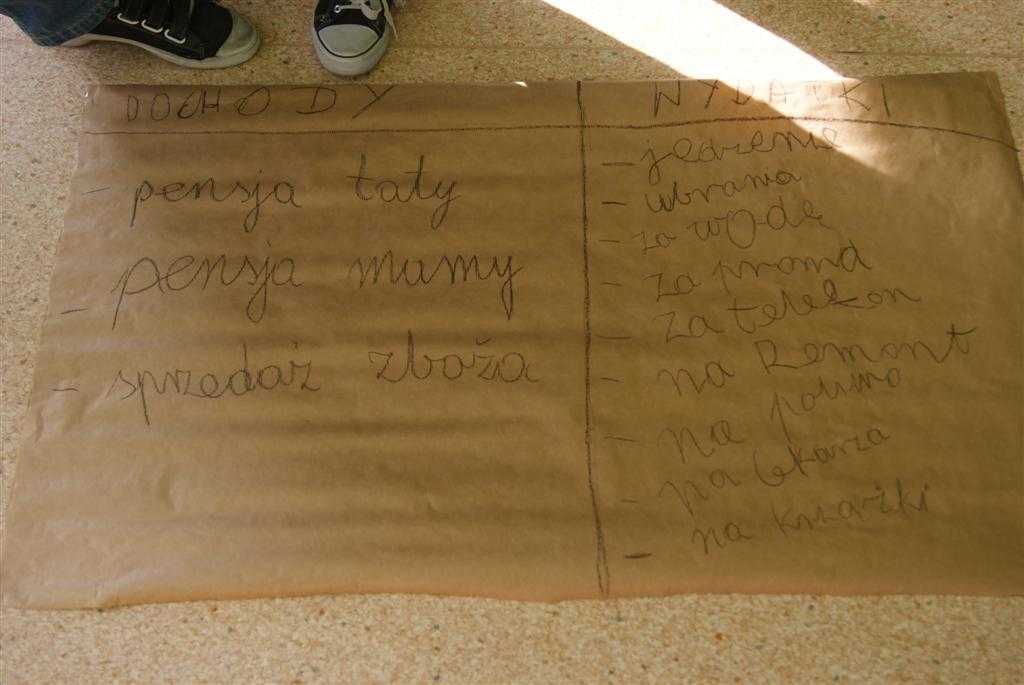 DOCHODY
- pensja taty
- pensja mamy
- sprzedaż zboża
WYDATKI
- jedzenie
- ubrania
- za wodę
- za prond
- za telefon
- na Remont
- na paliwo
- na lekarza
- na książki